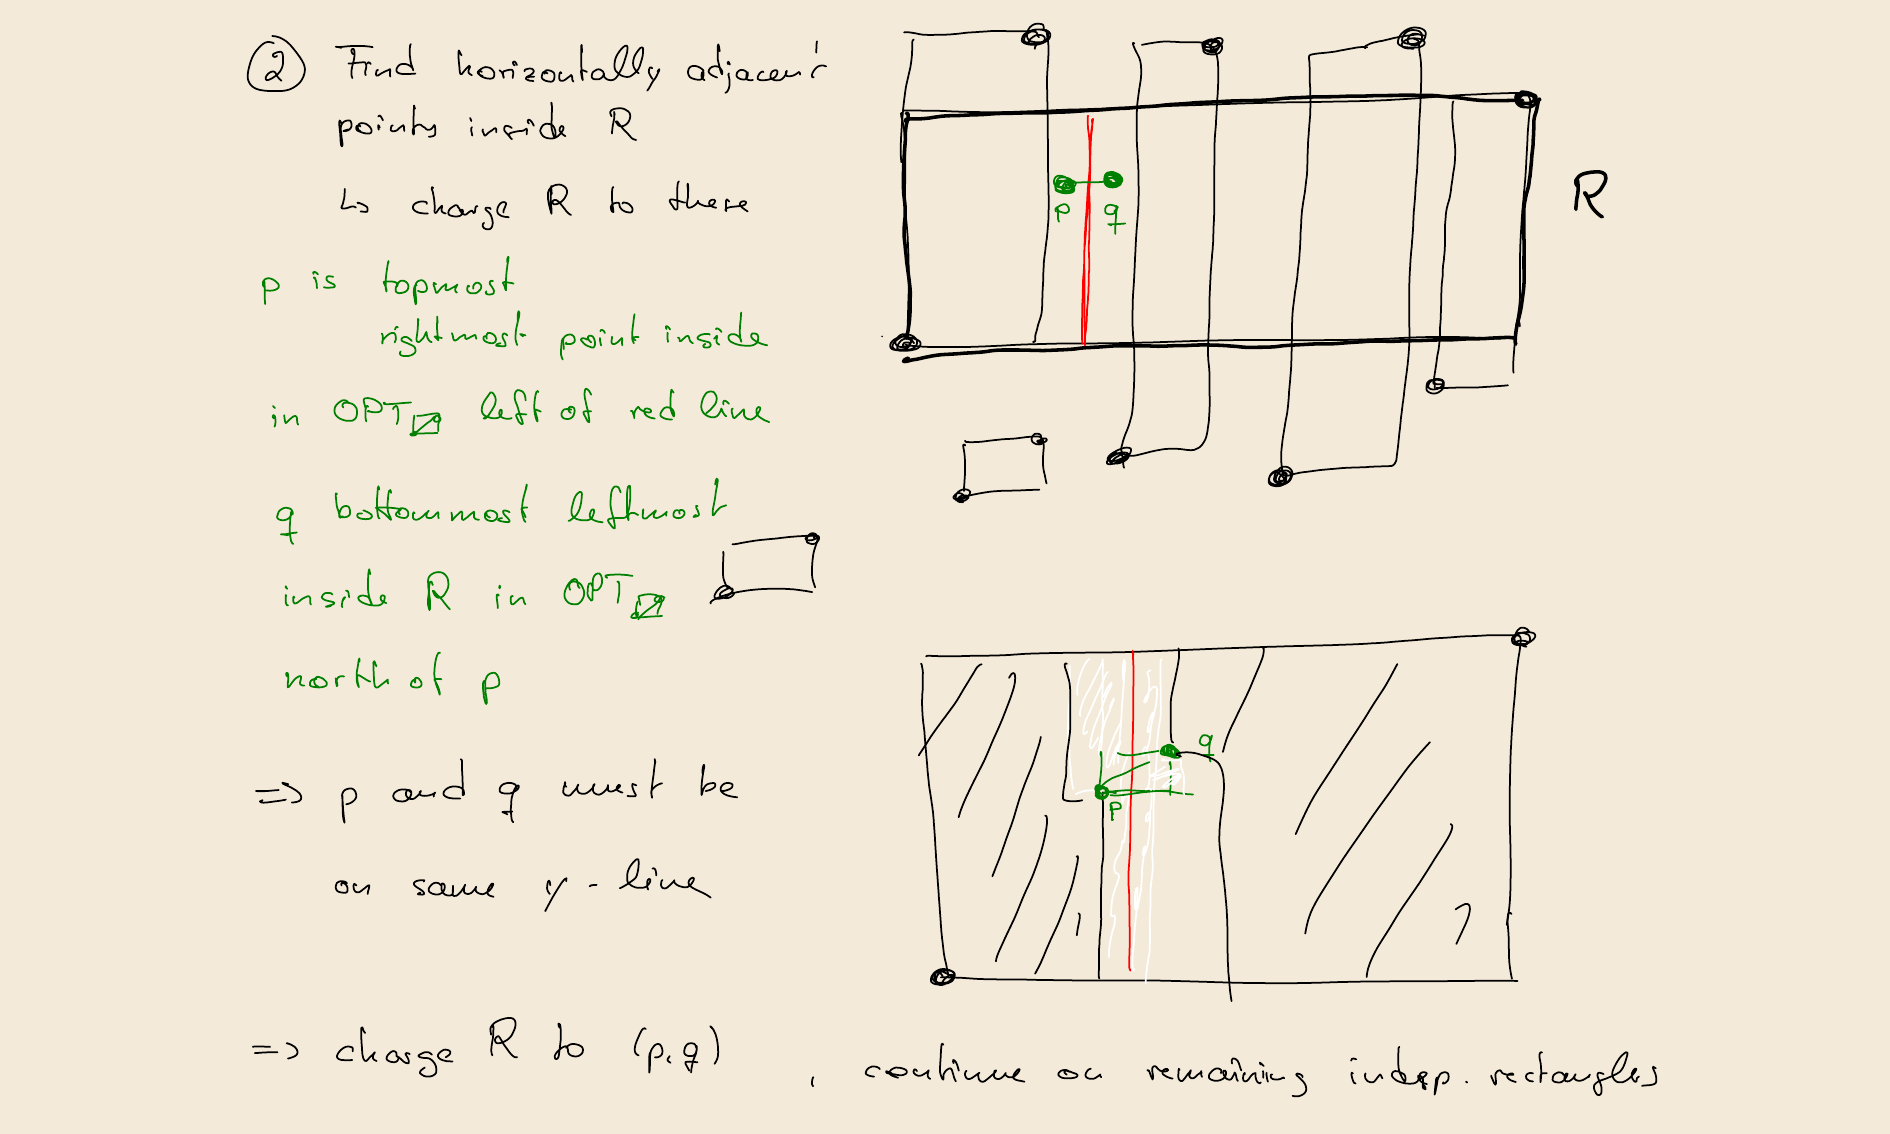 ② Find horizontally adjacent
points inside R
↳ charge R to these
p is topmost
rightmost point inside
in OPT◩ left of red line
q bottommost leftmost
inside R in OPT◩
north of p
=> p and q must be
on same y-line
=> charge R to (p,q)
, continue on remaining indep. rectangles
p q
R
q
p